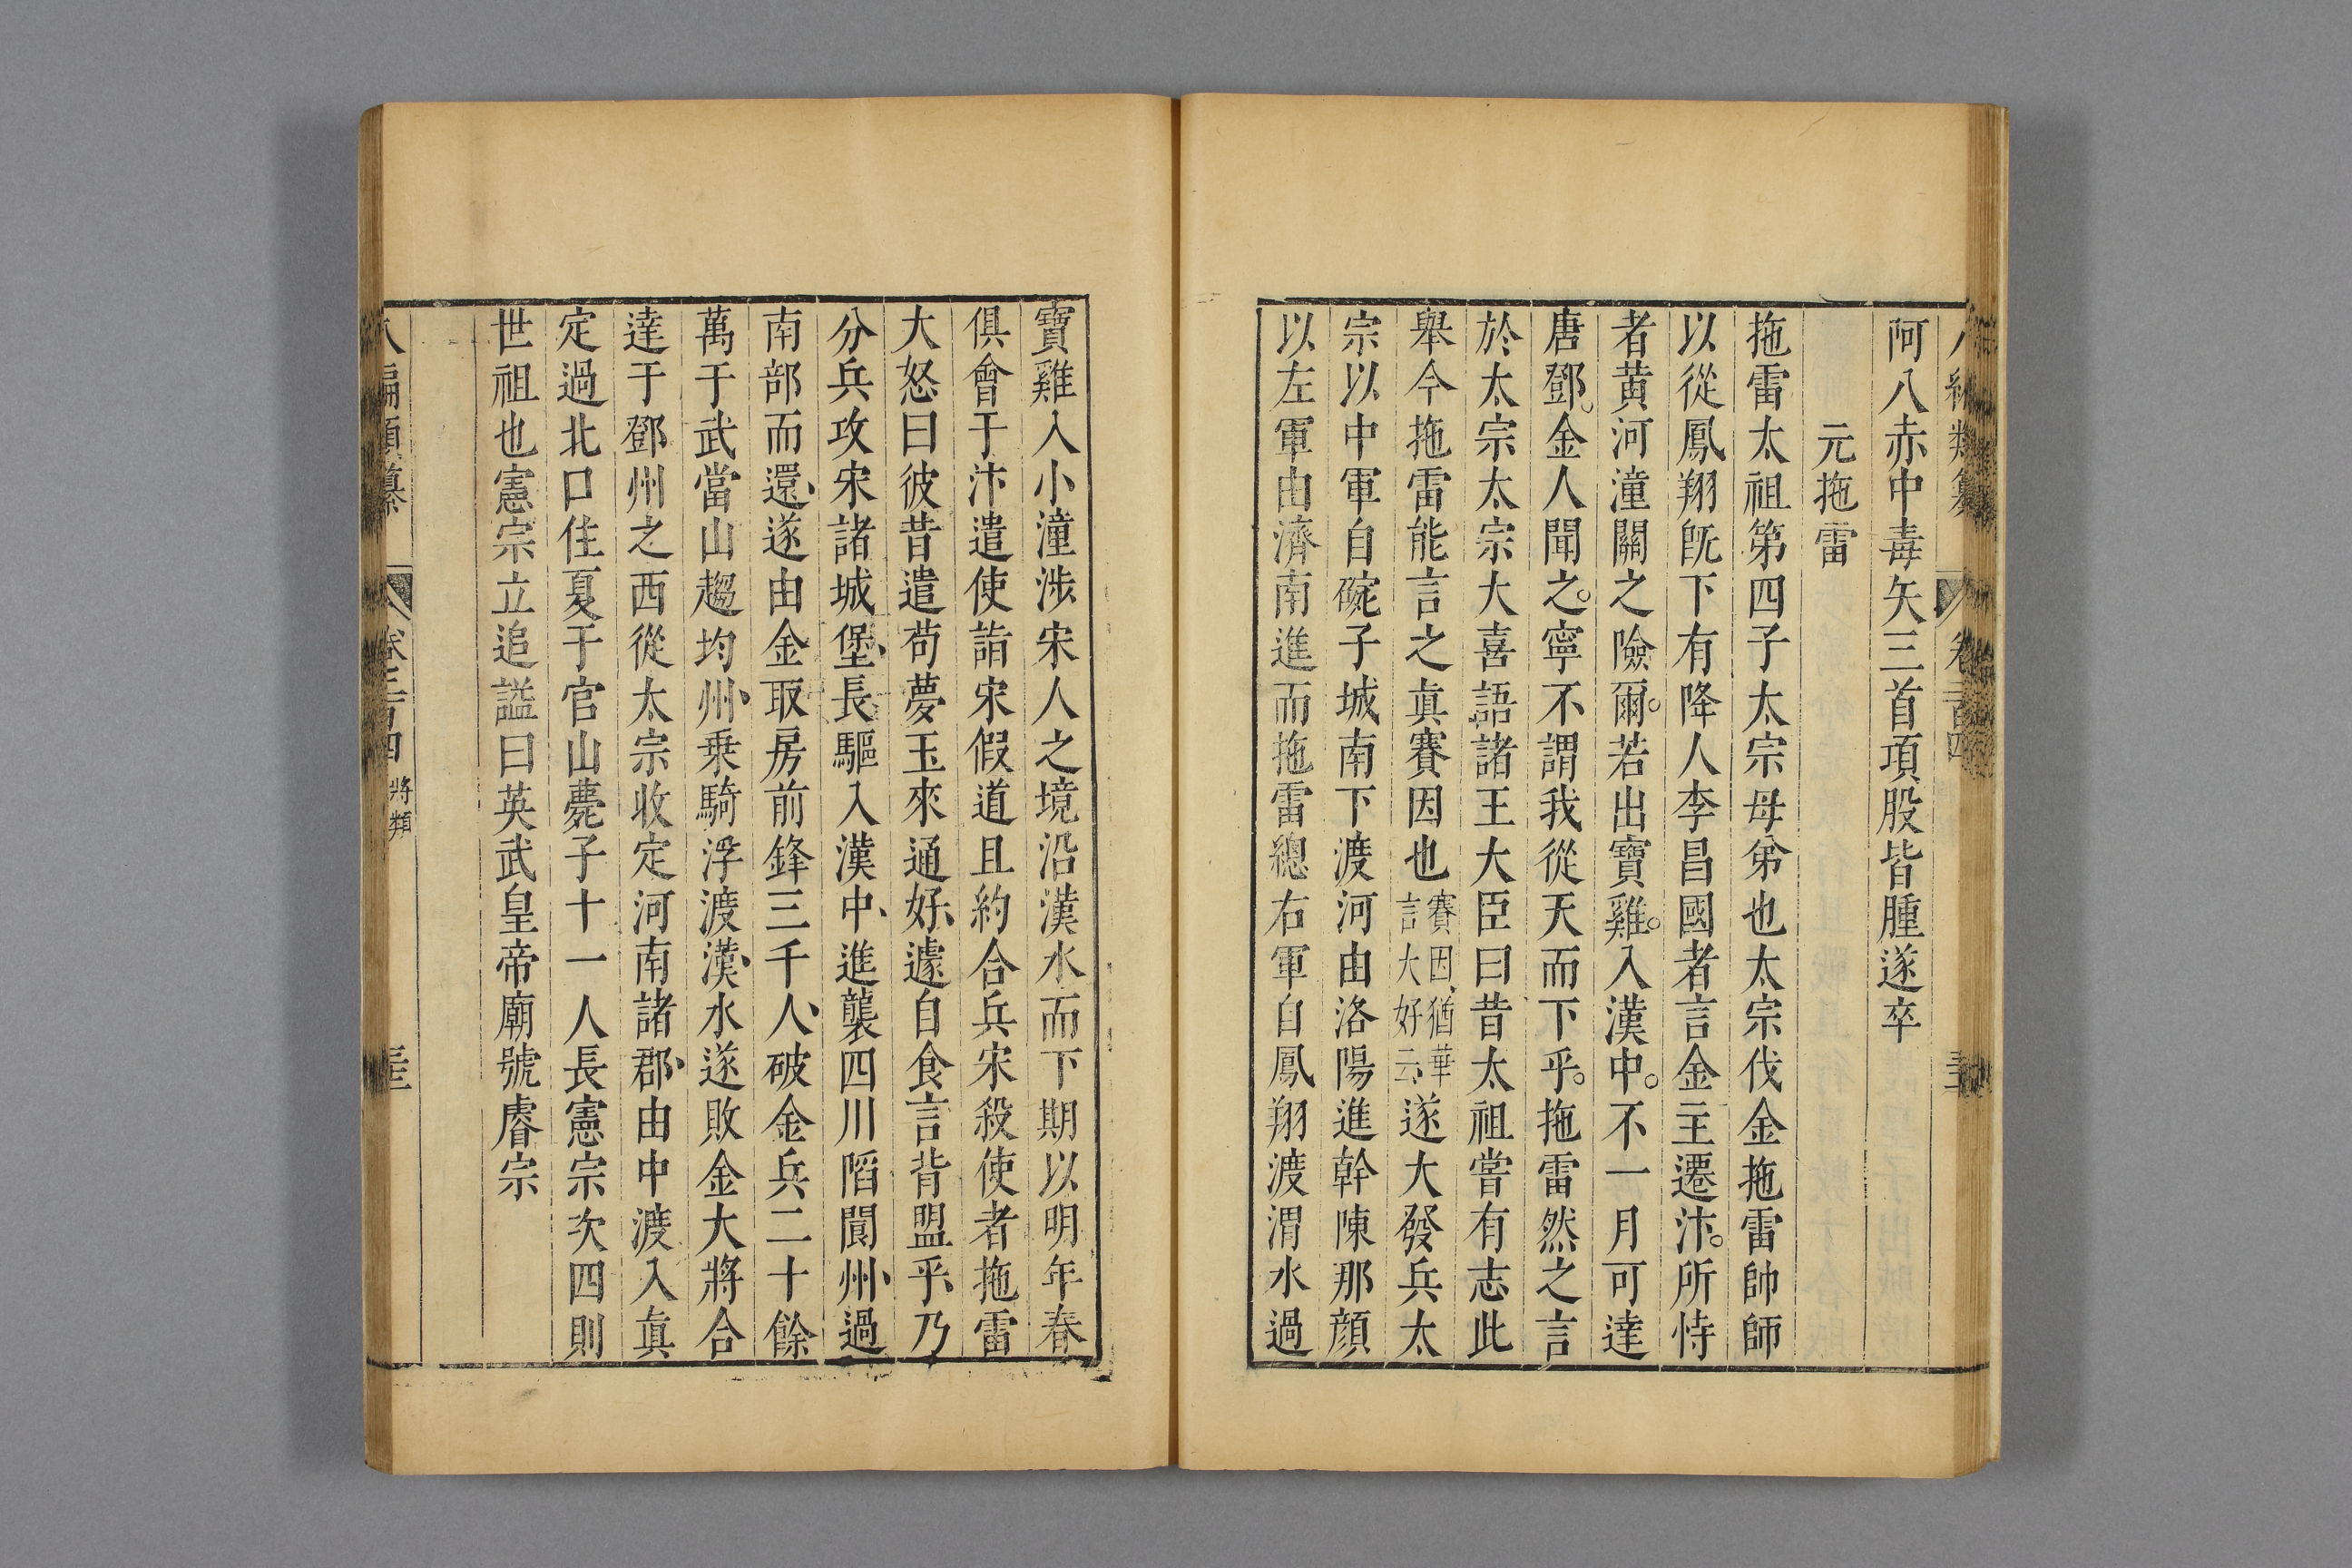 阿八赤中毒矢三首項股皆腫遂卒
元拖雷
拖雷太祖第四子太宗母弟也太宗伐金拖雷帥師
以從鳳翔旣下有降人李昌國者言金主遷汴。所恃
者黃河潼關之險爾。若出寶雞。入漢中。不一月可達
唐鄧。金人聞之。寧不謂我從天而下乎。拖雷然之言
於太宗太宗大喜語諸王大臣曰昔太祖嘗有志此
舉今拖雷能言之眞賽因也賽因、猶華言大好云、遂大發兵太
宗以中軍自碗子城南下渡河由洛陽進幹陳那顏
以左軍由濟南進而拖雷總右軍自鳳翔渡渭水過
寶雞入小潼涉宋人之境沿漢水而下期以明年春
俱會于汴遣使詣宋假道且約合兵宋殺使者拖雷
大怒曰彼昔遣苟夢玉來通好、遽自食言背盟乎、乃
分兵攻宋諸城堡、長驅入漢中、進襲四川陷閬州、過
南部而還、遂由金取房前鋒三千人、破金兵二十餘
萬于武當山趨均州、乗騎浮渡漢、水遂敗金大將合
達于鄧州之西從太宗收定河南諸郡、由中渡入眞
定過北口住夏于官山薨子十一人長憲宗次四則
世祖也憲宗立追謚曰英武皇帝廟號睿宗
八編類纂 卷二百四 將類